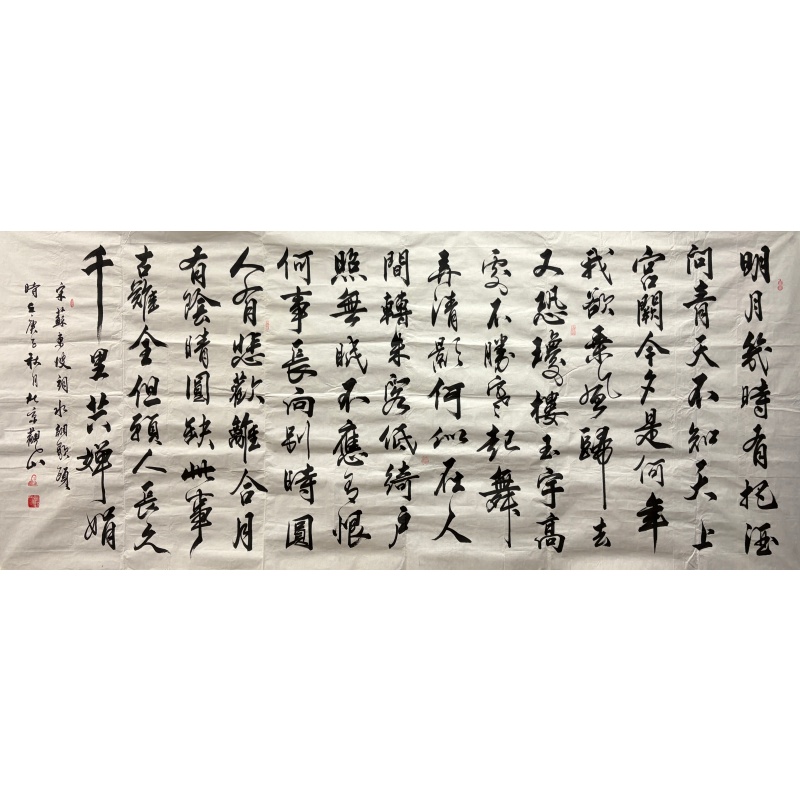 明月幾時有把酒
問青天不知天上
宮闕今夕是何年
我欲乘風歸去
又恐瓊樓玉宇高
處不勝寒起舞
弄清影何似在人
間轉朱閣低綺户
照無眠不應有恨
何事長向别時圓
人有悲歡離合月
有陰晴圓缺此事
古難全但願人長久
千里共嬋娟
宋蘇東坡詞水調歌頭
時在庚子秋月北京